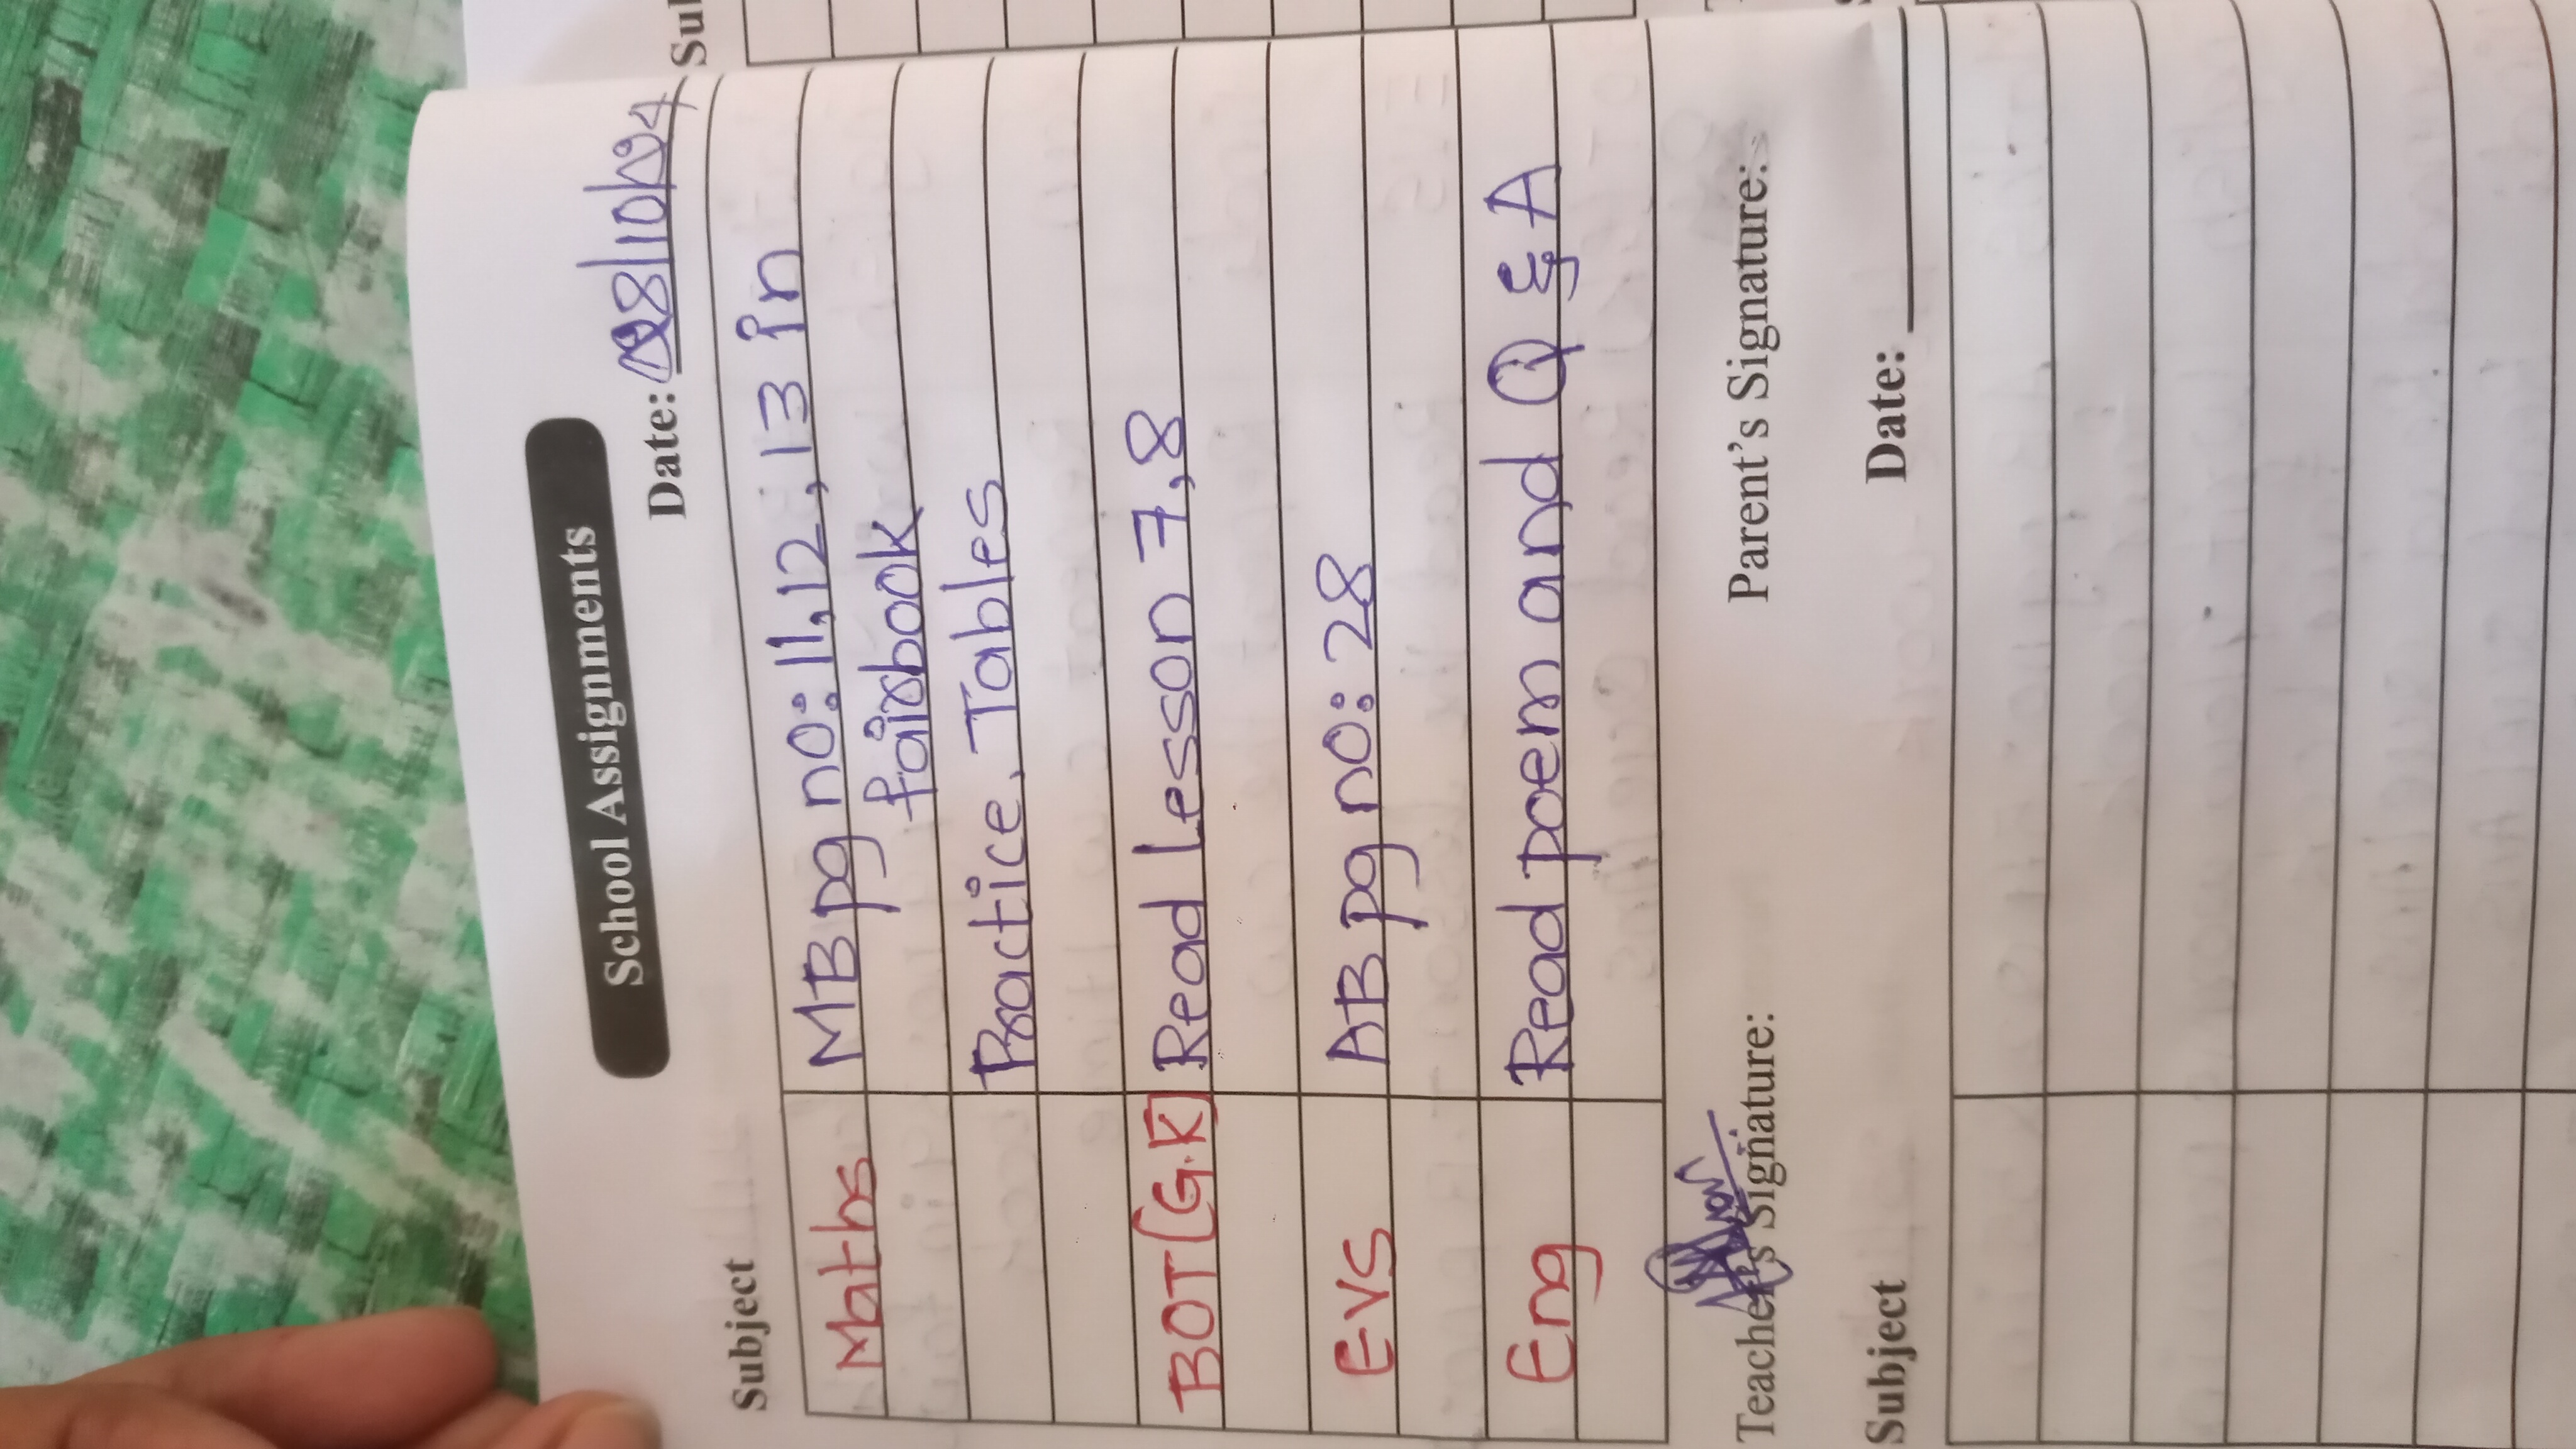 Su
School Assignments
Date: 28/10/24
Subject
Maths MB pg no: 11, 12, 13 in
fairbook
Practice Tables
BOT (G.K) Read Lesson 7,8
EVS AB pg no: 28
Eng Read poem and Q & A
Teacher's Signature: Parent's Signature:
Subject Date: